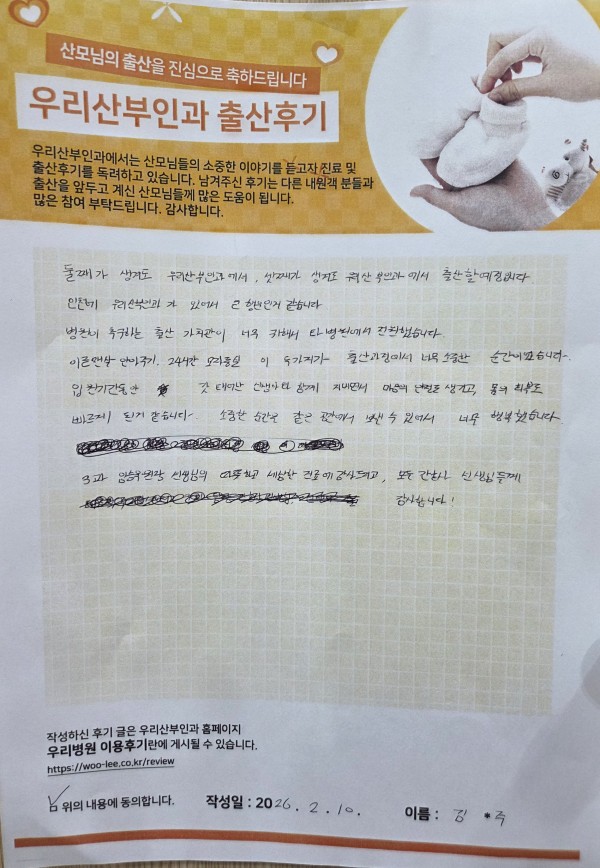 산모님의 출산을 진심으로 축하드립니다
우리산부인과 출산후기
우리산부인과에서는 산모님들의 소중한 이야기를 듣고자 진료 및
출산후기를 독려하고 있습니다. 남겨주신 후기는 다른 내원객 분들과
출산을 앞두고 계신 산모님들께 많은 도움이 됩니다.
많은 참여 부탁드립니다. 감사합니다.
둘째가 생겨도 우리산부인과에서, 셋째가 생겨도 우리산부인과에서 출산할 예정입니다.
우리산부인과가 있어서 큰 행운인거 같습니다
병원이 추구하는 출산 가치관이 너무 커해서 타병원에서 전원했습니다.
이르면서 안아주기, 24시간 모자동실 이 두가지가 출산과정에서 너무 소중한 순간이었습니다.
입원기간동안 갓 태어난 신생아와 함께 지내면서 마음의 안정도 생기고, 몸의 회복도
빠르게 된거 같습니다. 소중한 순간을 같은 공간에서 보낼 수 있어서 너무 행복했습니다.
3과 원장 선생님의 따뜻하고 세심한 진료에 감사드리고, 모든 간호사 선생님들께
감사합니다!
작성하신 후기 글은 우리산부인과 홈페이지
우리병원 이용후기란에 게시될 수 있습니다.
https://woo-lee.co.kr/review
위의 내용에 동의합니다. 작성일 : 2026. 2. 10. 이름 : 김*주